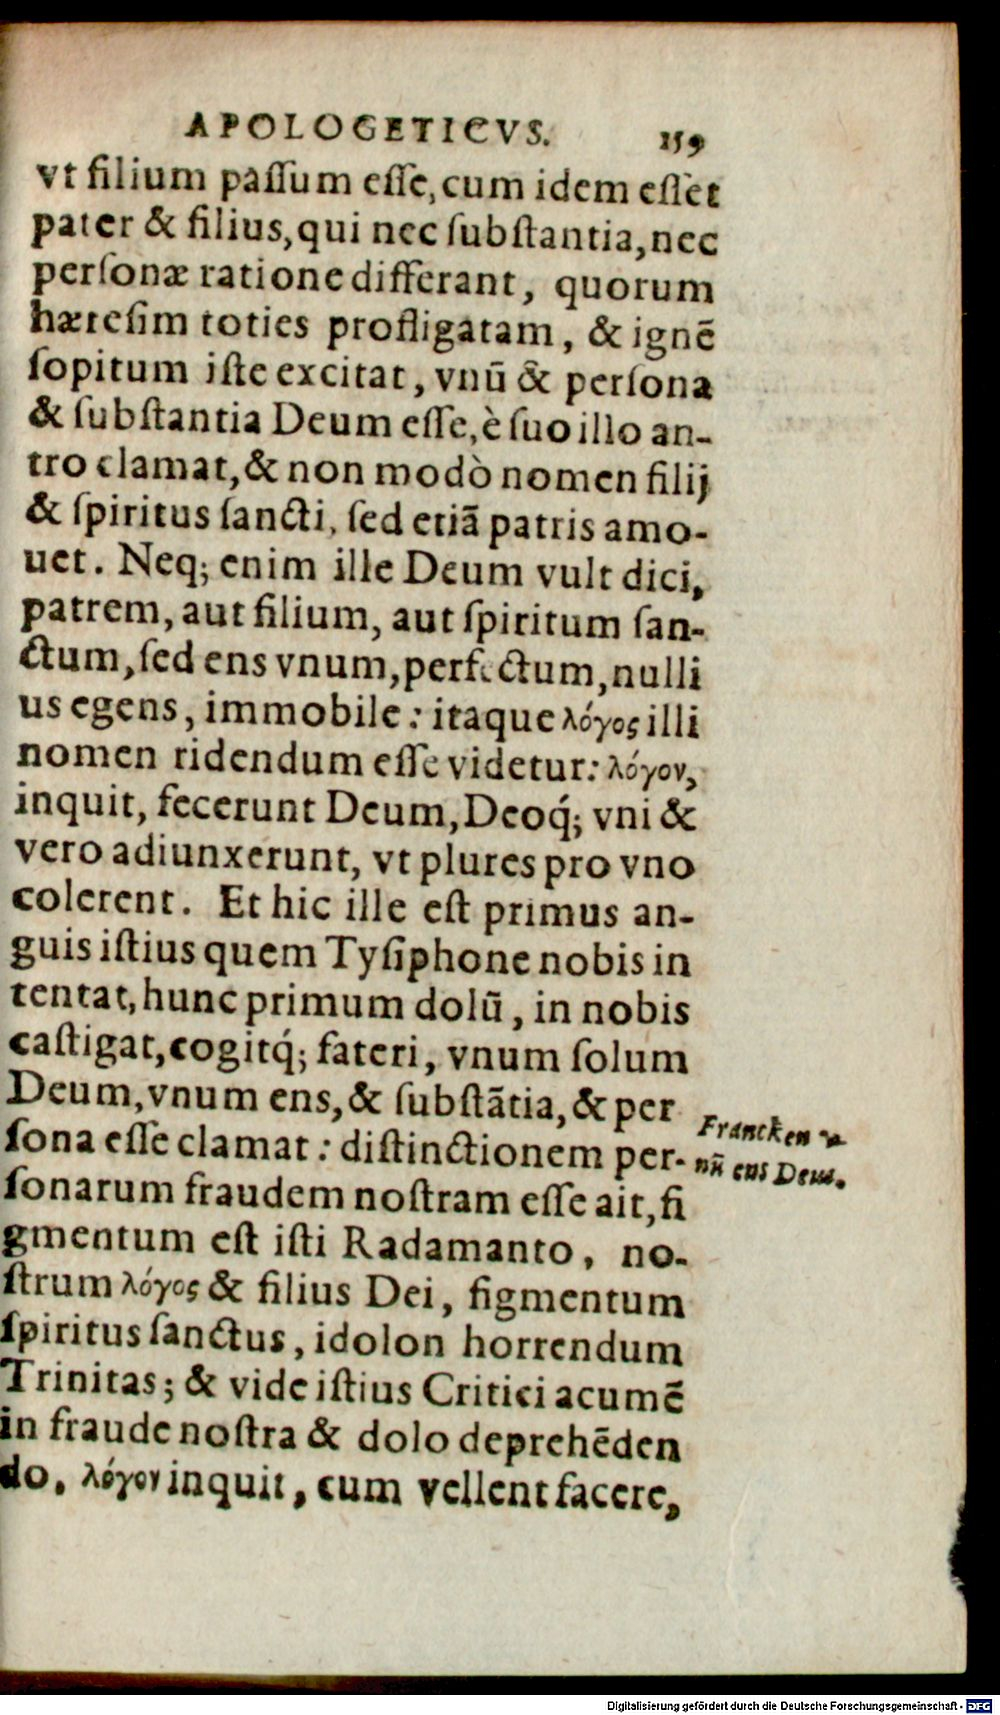 APOLOGETICVS. 159
vt filium paſſum eſſe, cum idem eſſet
pater & filius, qui nec ſubſtantia, nec
perſonæ ratione differant, quorum
hæreſim toties profligatam, & ignẽ
ſopitum iſte excitat, vnũ & perſona
& ſubſtantia Deum eſſe, è ſuo illo an-
tro clamat, & non modò nomen filij
& ſpiritus ſancti, ſed etiã patris amo-
uet. Neq; enim ille Deum vult dici,
patrem, aut filium, aut ſpiritum ſan-
ctum, ſed ens vnum, perfectum, nulli
us egens, immobile: itaque λόγος illi
nomen ridendum eſſe videtur: λόγον,
inquit, fecerunt Deum, Deoq́; vni &
vero adiunxerunt, vt plures pro vno
colerent. Et hic ille eſt primus an-
guis iſtius quem Tyſiphone nobis in
tentat, hunc primum dolũ, in nobis
caſtigat, cogitq́; fateri, vnum ſolum
Deum, vnum ens, & ſubſtãtia, & per
ſona eſſe clamat: diſtinctionem per-
Francken v-
nũ ens Deus.
ſonarum fraudem noſtram eſſe ait, fi
gmentum eſt iſti Radamanto, no-
ſtrum λόγος & filius Dei, figmentum
ſpiritus ſanctus, idolon horrendum
Trinitas; & vide iſtius Critici acumẽ
in fraude noſtra & dolo deprehẽden
do, λόγον inquit, cum vellent facere,
Digitalisierung gefördert durch die Deutsche Forschungsgemeinschaft - DFG